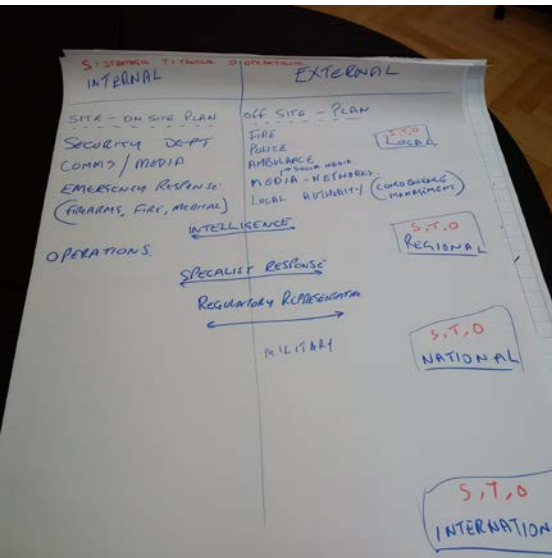 S: STRATEGIC T: TACTICAL O: OPERATIONAL
INTERNAL
SITE - ON SITE PLAN
SECURITY DEPT
COMMS / MEDIA
EMERGENCY RESPONSE
(FIREARMS, FIRE, MEDICAL)
OPERATIONS.
EXTERNAL
OFF SITE - PLAN
FIRE
POLICE
AMBULANCE
SOCIAL MEDIA
MEDIA - NETWORKS
LOCAL AUTHORITY (CONSEQUENCE
MANAGEMENT)
INTELLIGENCE
SPECIALIST RESPONSE
REGULATORY
MILITARY
S, T, O
LOCAL
S, T, O
REGIONAL
S, T, O
NATIONAL
S, T, O
INTERNATION